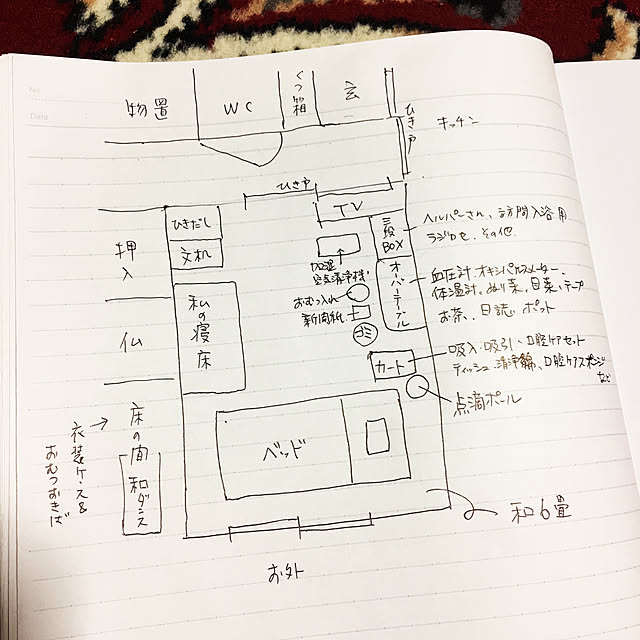 No.
Date
物置
WC
くつ箱
玄
ひき戸
キッチン
ひき戸
TV
ひきだし
文机
三段
BOX
ヘルパーさん、訪問入浴用
ラジカセ、その他
押入
加湿
空気清浄機
オーバーテーブル
血圧計.オキシパルスメーター.
体温計.ぬり薬.目薬.テープ
お茶、日誌、ポット
おむつ入れ
新聞紙
ゴミ
私の寝床
仏
カート
吸入.吸引、口腔ケアセット
ティッシュ.清浄綿、口腔ケアスポンジ
など
点滴ポール
床の間
和ダンス
衣装ケース&
おむつおきば
ベッド
和6畳
お外